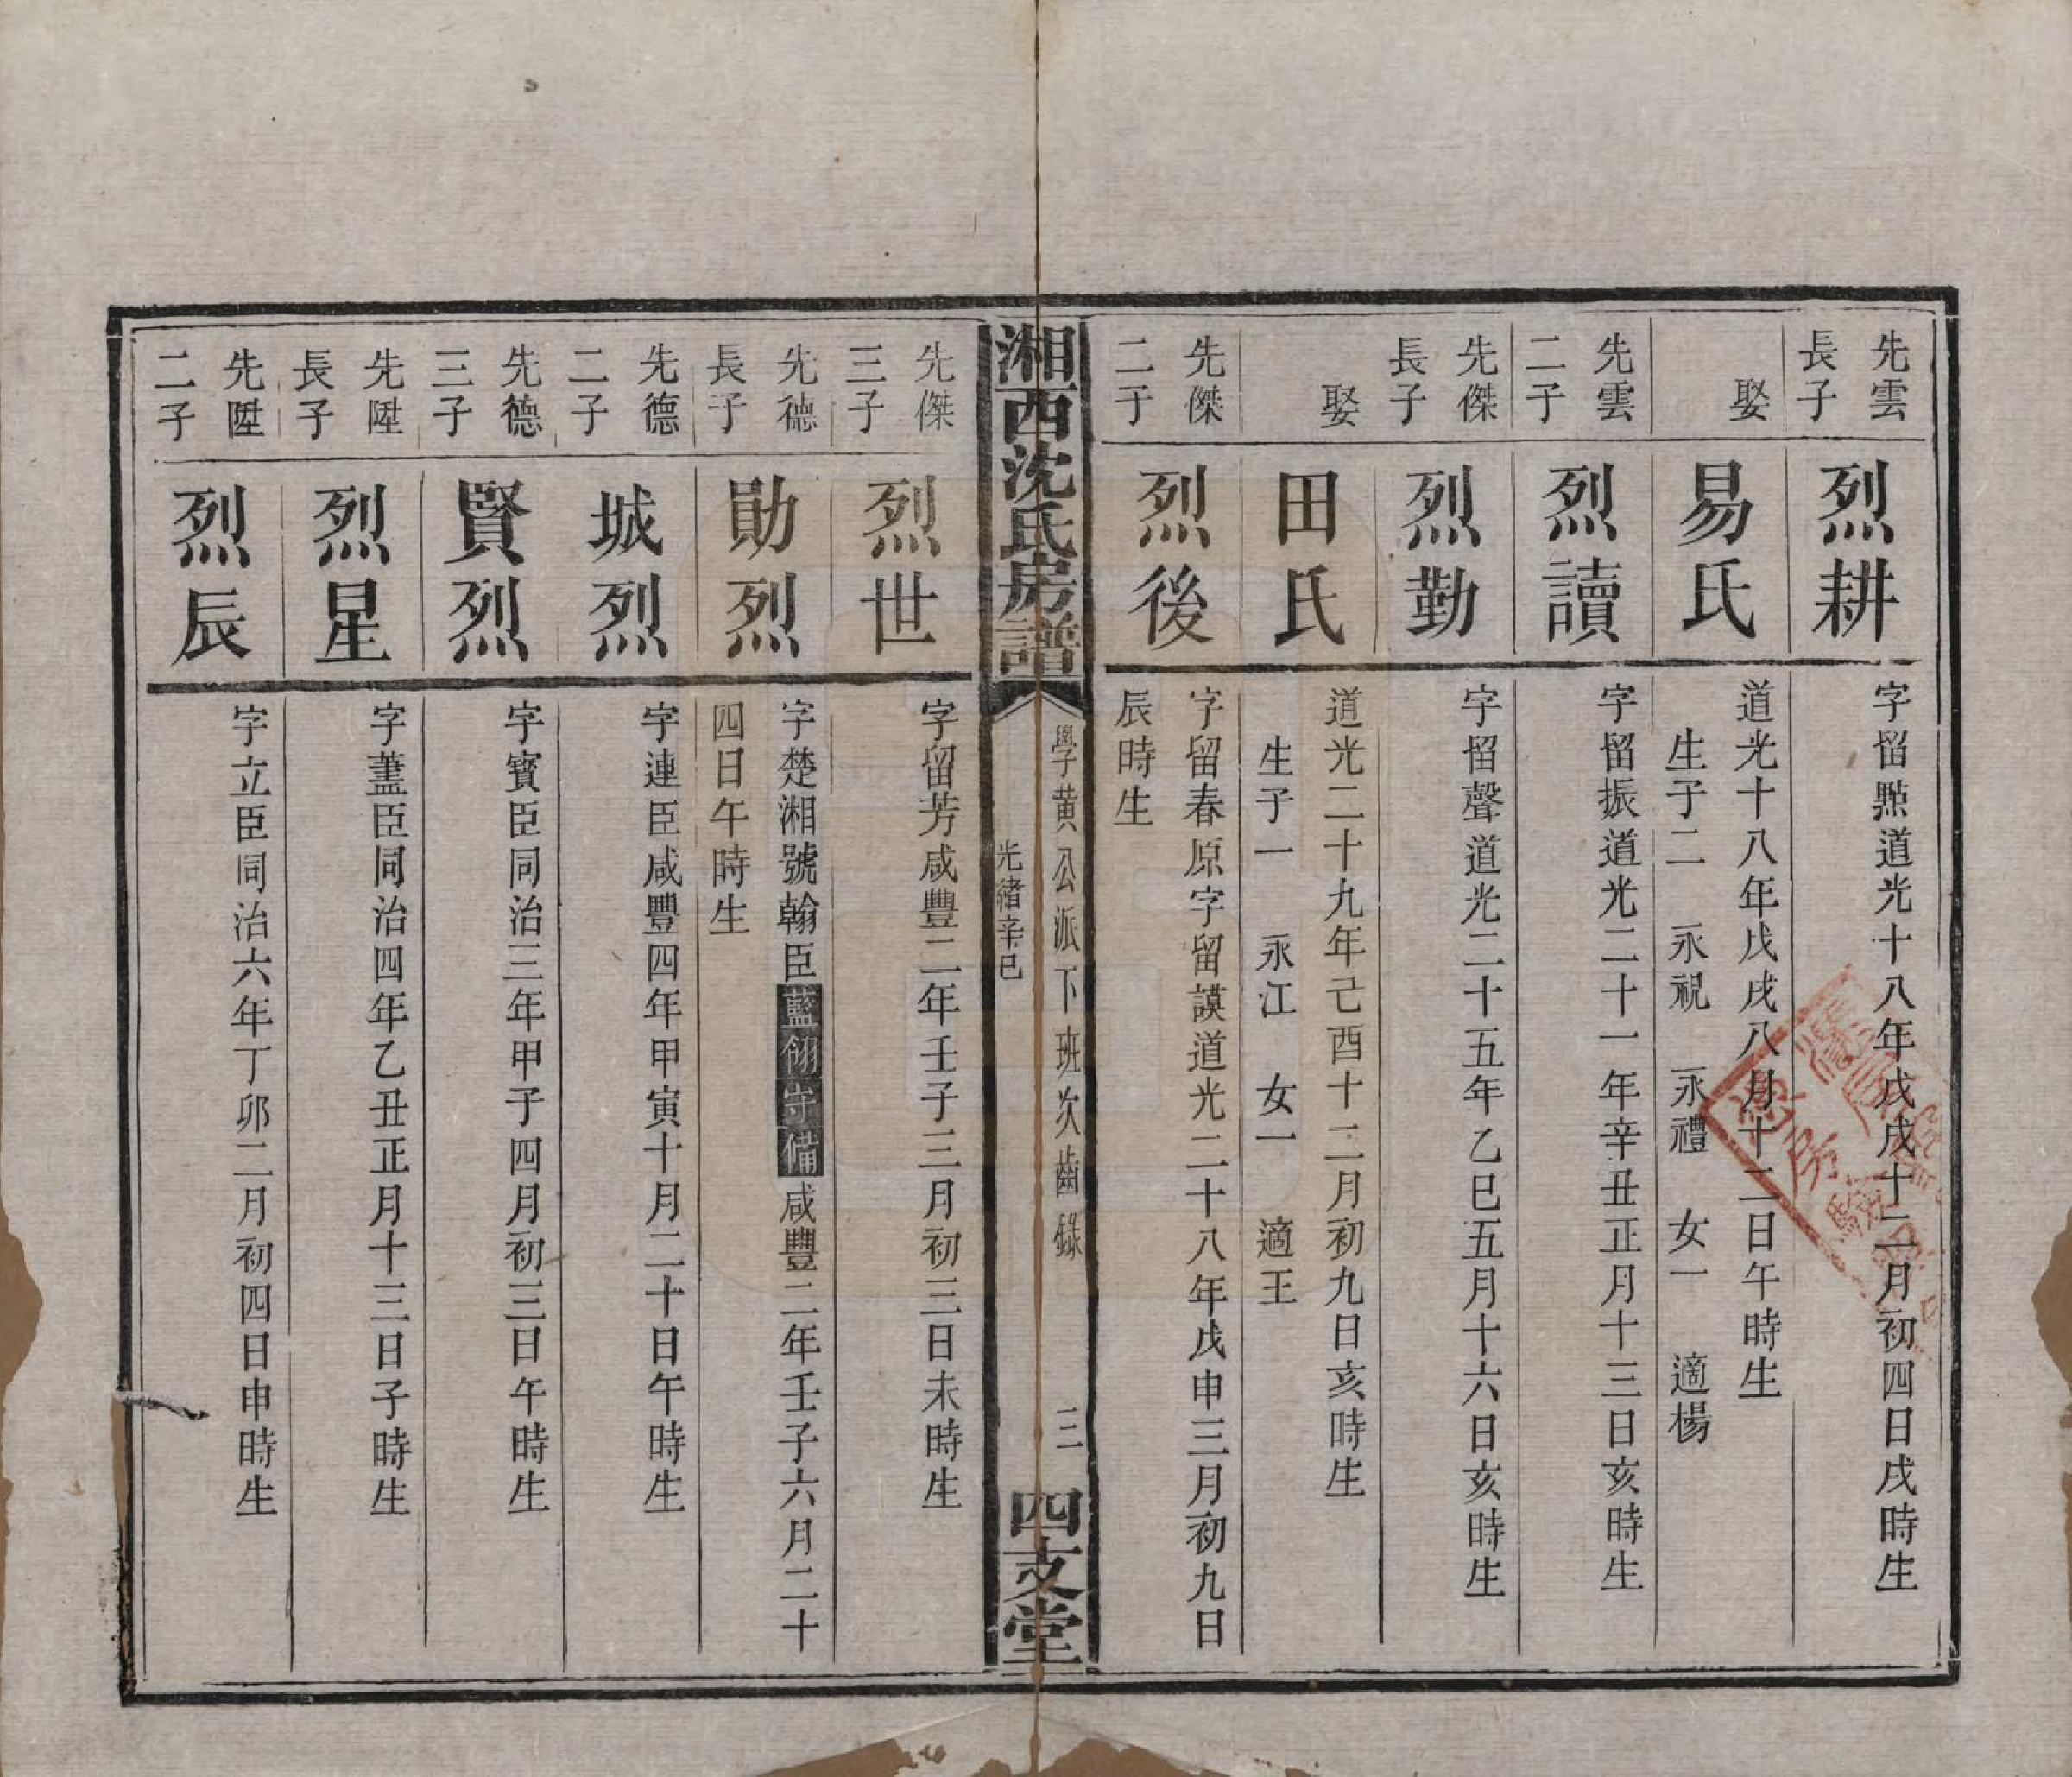 先雲
長子
烈耕
字畱㸃道光十八年戊戌十二月初四日戌時生
娶
易氏
道光十八年戊戌八月十二日午時生
生子二 永祝 永禮 女一 適楊
先雲
二子
烈讀
字畱振道光二十一年辛丑正月十三日亥時生
先傑
長子
烈勤
字畱聲道光二十五年乙巳五月十六日亥時生
娶
田氏
道光二十九年己酉十二月初九日亥時生
生子一 永江 女一 適王
先傑
二子
烈後
字畱春原字畱謨道光二十八年戊申三月初九日
辰時生
湘西沈氏房譜
學黄公派下班次齒錄
三
光緒辛巳
四支堂
先傑
三子
烈世
字畱芳咸豐二年壬子三月初三日未時生
先德
長子
勛烈
字楚湘號翰臣藍翎守備咸豐二年壬子六月二十
四日午時生
先德
二子
城烈
字連臣咸豐四年甲寅十月二十日午時生
先德
三子
賢烈
字寶臣同治三年甲子四月初三日午時生
先陞
長子
烈星
字藎臣同治四年乙丑正月十三日子時生
先陞
二子
烈辰
字立臣同治六年丁卯二月初四日申時生